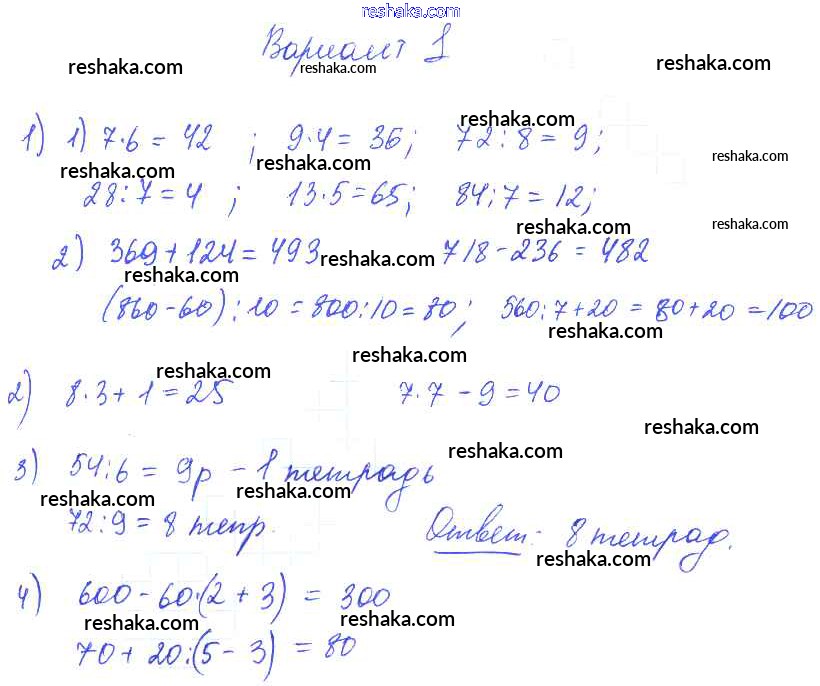 reshaka.com
Вариант 1
reshaka.com reshaka.com reshaka.com
reshaka.com
1) 1) 7·6 = 42 ; 9·4 = 36; 72:8 = 9;
reshaka.com reshaka.com reshaka.com
28:7 = 4 ; 13·5 = 65; 84:7 = 12;
reshaka.com reshaka.com
2) 369 + 124 = 493 718 - 236 = 482
reshaka.com reshaka.com
(860-60):10 = 800:10 = 80; 560:7+20 = 80+20 = 100
reshaka.com
reshaka.com reshaka.com
2) 8·3 + 1 = 25 7·7 - 9 = 40
reshaka.com
3) 54:6 = 9р - 1 тетрадь
reshaka.com
reshaka.com reshaka.com
72:9 = 8 тетр. Ответ: 8 тетрад.
reshaka.com reshaka.com
4) 600 - 60·(2 + 3) = 300
reshaka.com reshaka.com
70 + 20:(5 - 3) = 80
reshaka.com